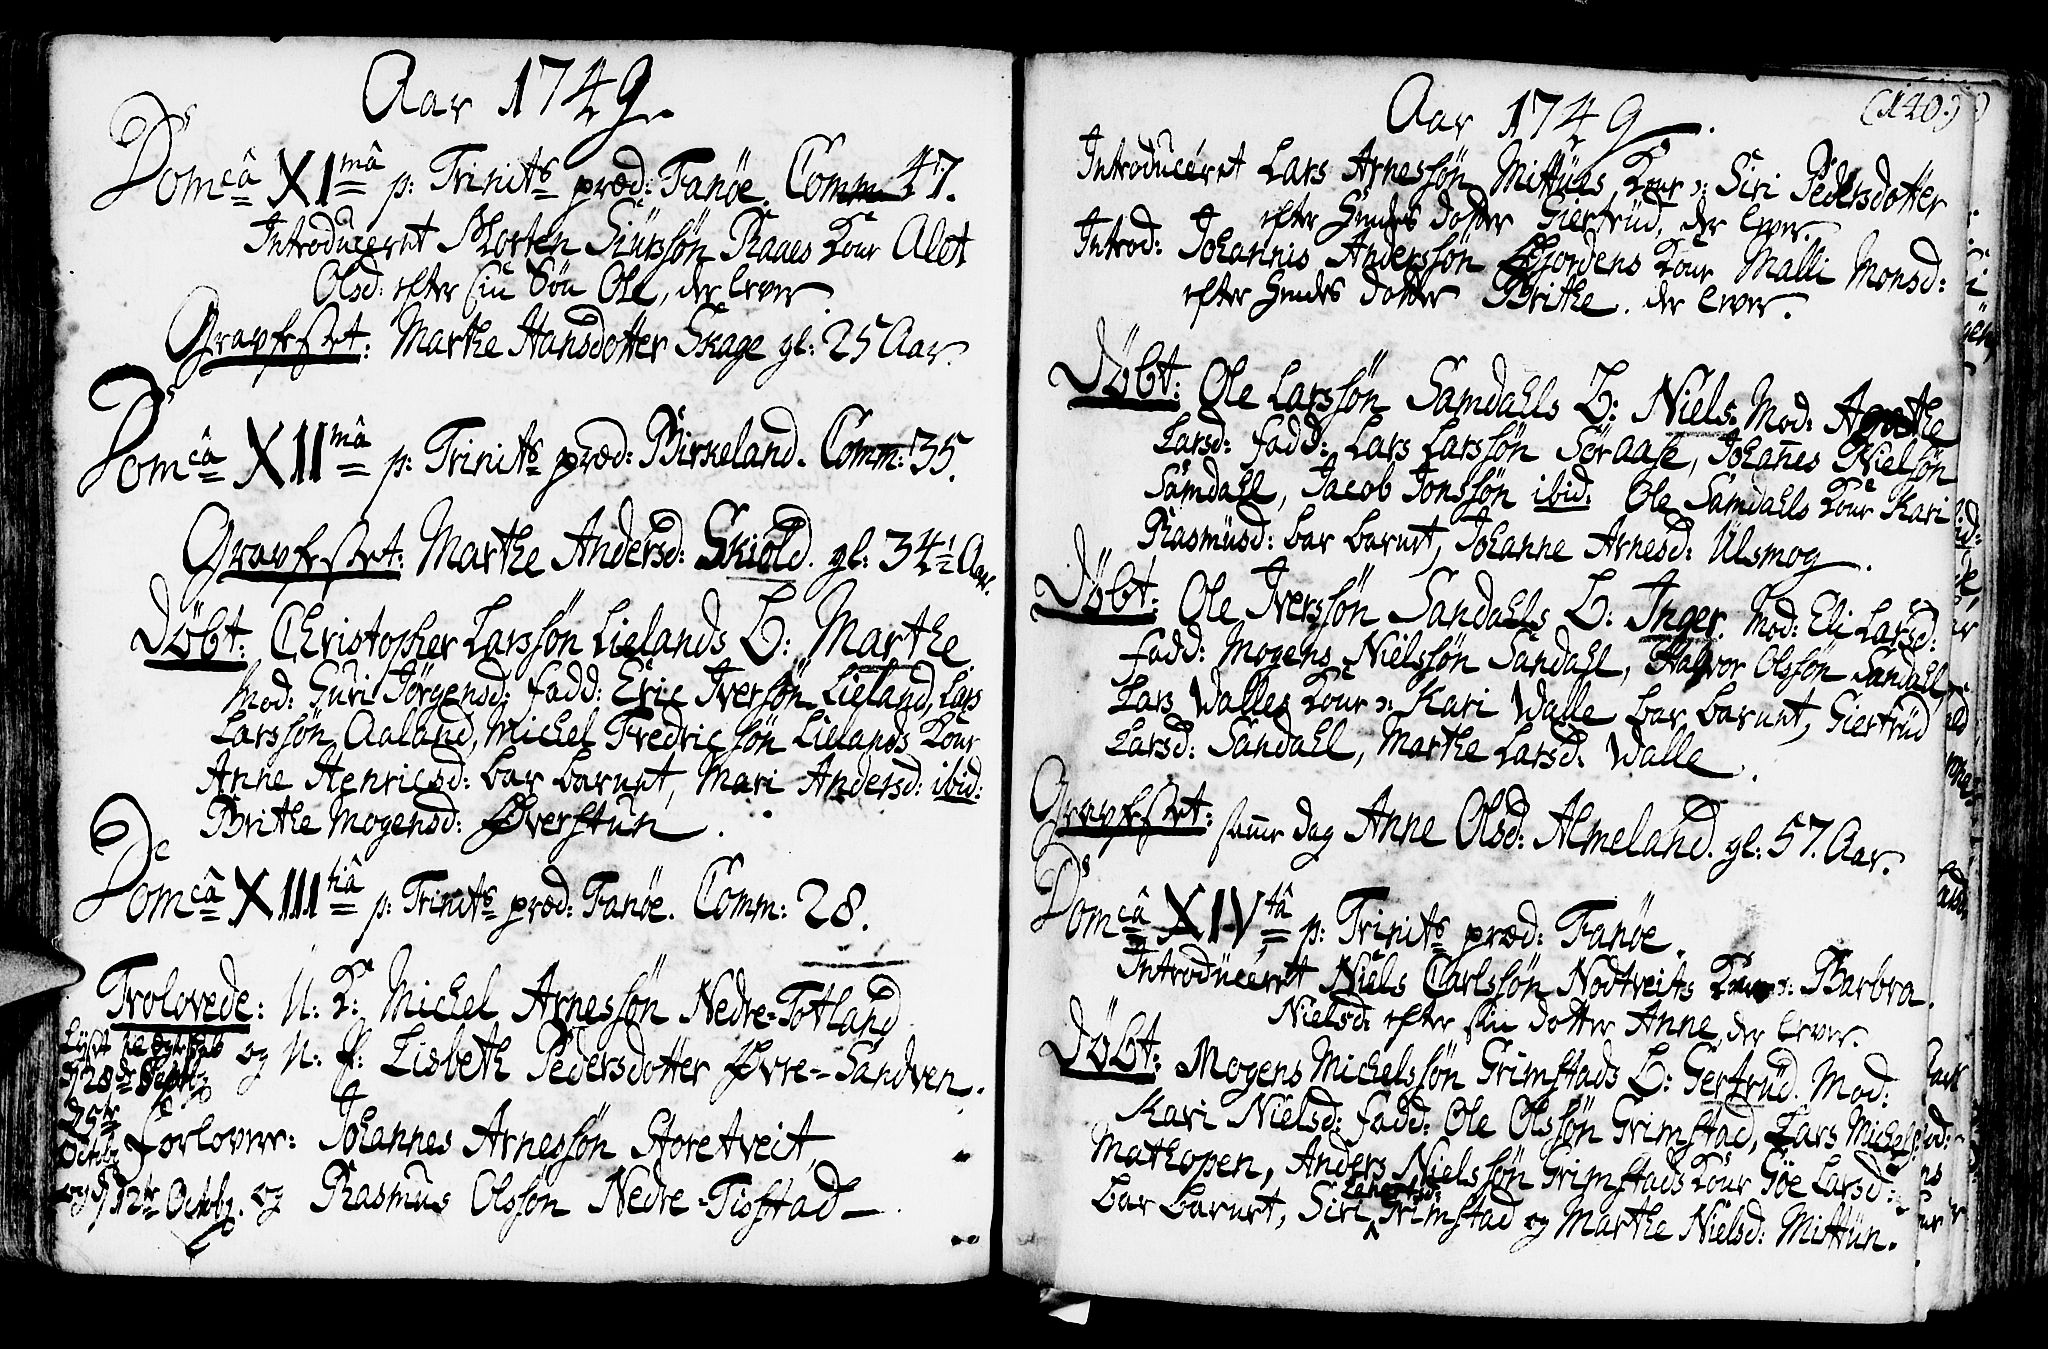 Aar 1749.
Dom<sup>câ</sup> XI<sup>mâ</sup> p: Trinit<sup>s</sup> præd: Fanöe. Comm 47.
Introduceret Morten Siurssön Raaes Kone Alet
Olsd: efter sin Sön Ole, der lever
Gravfestet: Marthe Hansdotter Skage gl: 25 Aar.
Dom<sup>câ</sup> XII<sup>mâ</sup> p: Trinit<sup>s</sup> præd: Birkeland. Comm: 35.
Gravfestet: Marthe Andersd: Skiold. gl: 34 Aar.
Döbt: Christopher Larssön Lielands B: Marthe
Mod: Guri Jörgensd: fadd: Eric Iversön Lieland, Lars
Larssön Aaland, Michel Fredricsön Lielands Kone
Anne Henricsd: bar barnet, Mari Andersd: ibid:
Brithe Mogensd: Øverstun.
Dom<sup>câ</sup> XIII<sup>tiâ</sup> p: Trinit<sup>s</sup> præd: Fanöe. Comm: 28.
Trolovede: U: K: Michel Arnessön Nedre-Totland
og U: P: Lisbeth Pedersdotter Øvre-Sandven.
Lyst
28de Septr
Forlover: Johannes Arnessön Storetveit,
25
Octobr
og Rasmus Olssön Nedre-Tisstad
og 12te Octobr.
Aar 1749.
(140.)
Introduceret Lars Arnessön Mittuns Kone Siri Pedersdotter
efter hendes dotter Giertrüd, der lever.
Introd: Johannis Anderssön Kone Malli Monsd:
efter hendes dotter Brithe. der lever.
Döbt: Ole Larssön Samdahls B: Niels. Mod: Agathe
Larsd: fadd: Lars Larssön Söraase, Johannes Nielsön
Samdahl, Jacob Jonssön ibid: Ole Samdahls Kone Kari
Rasmüsd: bar barnet, Johanne Arnesd: Ulsmog.
Döbt: Ole Iverssön Sandahls B: Inger. Mod: Eli Larsd:
fadd: Mogens Nielssön Sandahl, Halvor Olssön Sandahl,
Lars Walles Kone Kari Walle bar barnet, Giertrüd
Larsd: Sandahl, Marthe Larsd: Walle.
Gravfestet: samme dag Anne Olsd: Almeland. gl: 57. Aar.
Dom<sup>câ</sup> XIV<sup>tâ</sup> p: Trinit<sup>s</sup> præd: Fanöe.
Introduceret Niels Carlssön Nodtveits Kone Barbra
Nielsd: efter sin dotter Anne, der lever.
Döbt: Mogens Michelssön Grimstads B: Gertrüd. Mod:
Kari Nielsd: fadd: Ole Olssön Grimstad, Lars Michels:
Mathopen, Anders Nielssön Grimstads Kone Göe Larsd:
bar barnet, Siri Grimstad og Marthe Nielsd: Mittün.